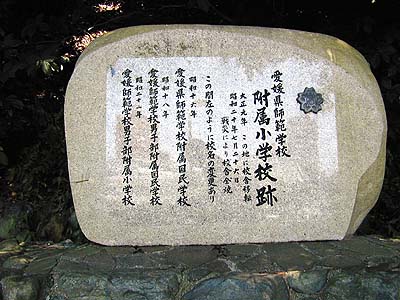 愛媛県師範学校
附属小学校跡
大正元年 この地に校舎移転
昭和二十年七月二十六日
戦災により校舎全焼
この間左のように校名の変更あり
昭和十六年
愛媛県師範学校附属国民学校
昭和十八年
愛媛師範学校男子部附属国民学校
昭和二十一年
愛媛師範学校男子部附属小学校